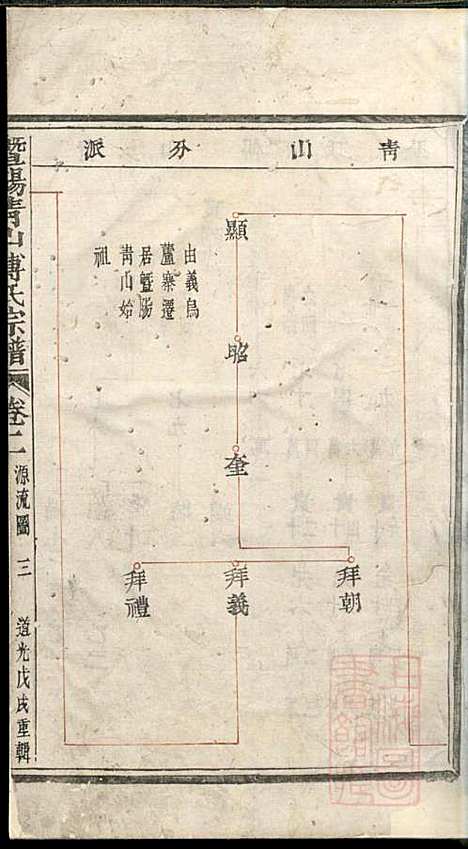 青山分派
顯
由義烏
蘆寨遷
居暨陽
青山始
祖
昭
奎
拜朝
拜義
拜禮
暨陽青山傅氏宗譜
卷二
源流圖
三
道光戊戌重輯